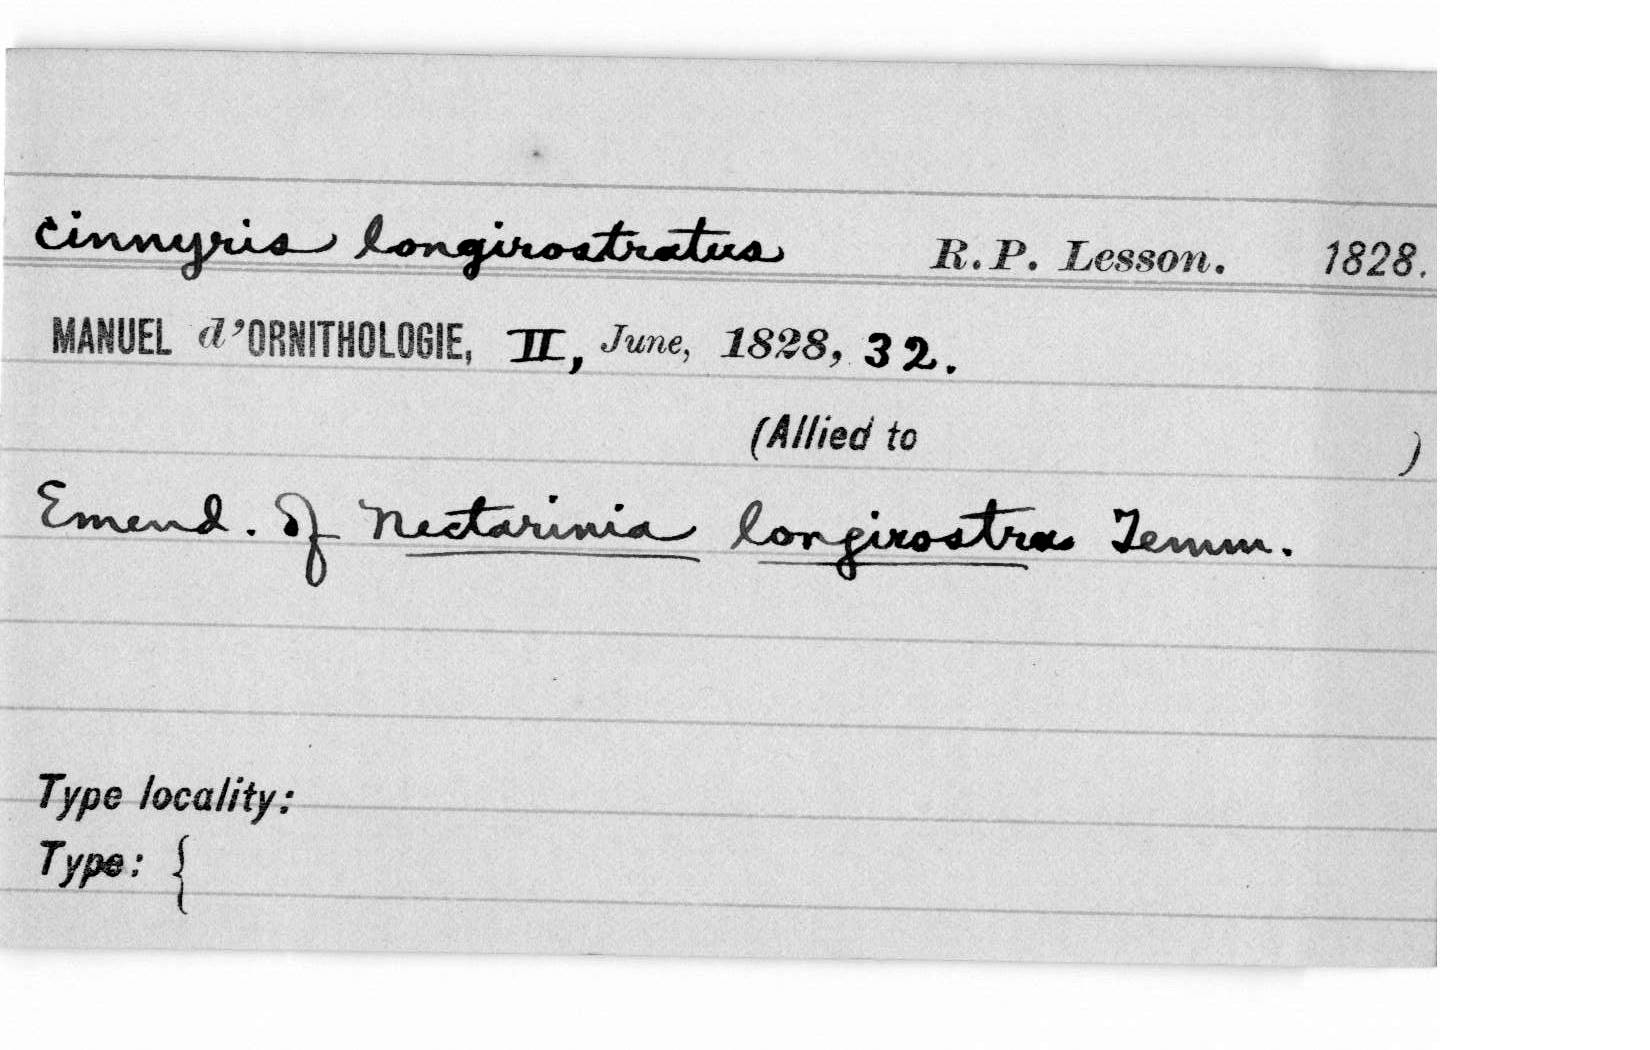 Cinnyris longirostratus R.P. Lesson. 1828.
MANUEL d'ORNITHOLOGIE, II, June, 1828, 32.
(Allied to )
Emend. of Nectarinia longirostra Temm.
Type locality:
Type: {